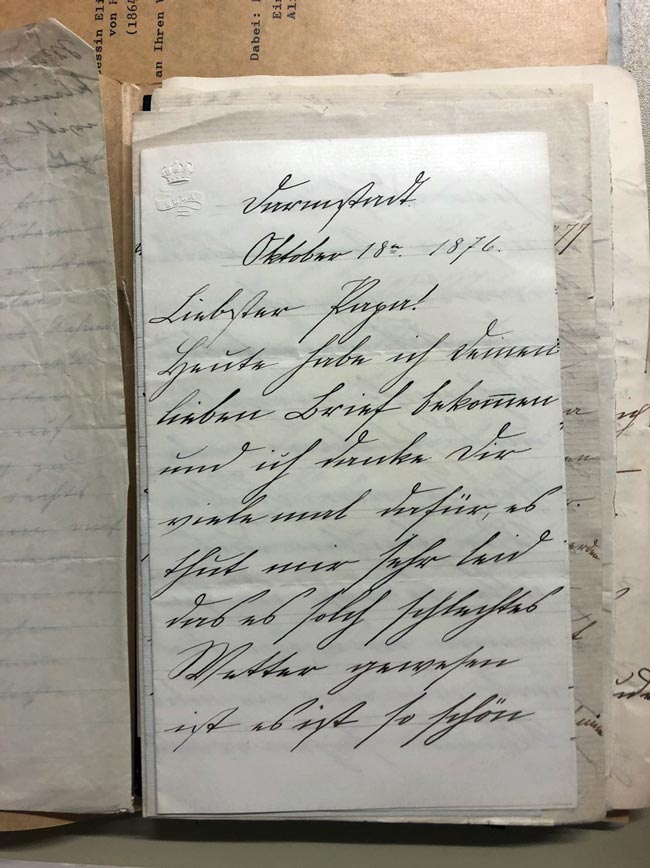 essin Eli
von
(1864
an Ihren
Dabei:
Ein
Al
ELLA
Darmstadt.
Oktober 18n. 1876.
Liebster Papa!
Heute habe ich deinen
lieben Brief bekom̅en
und ich danke Dir
viele mal dafür, es
thut mir sehr leid
das es solch schlechtes
Wetter gewesen
ist es ist so schön
77